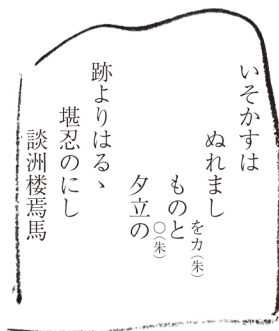 いそかすは
ぬれまし
をカ（朱）
ものと
○（朱）
夕立の
跡よりはるゝ
堪忍のにし
談洲楼焉馬